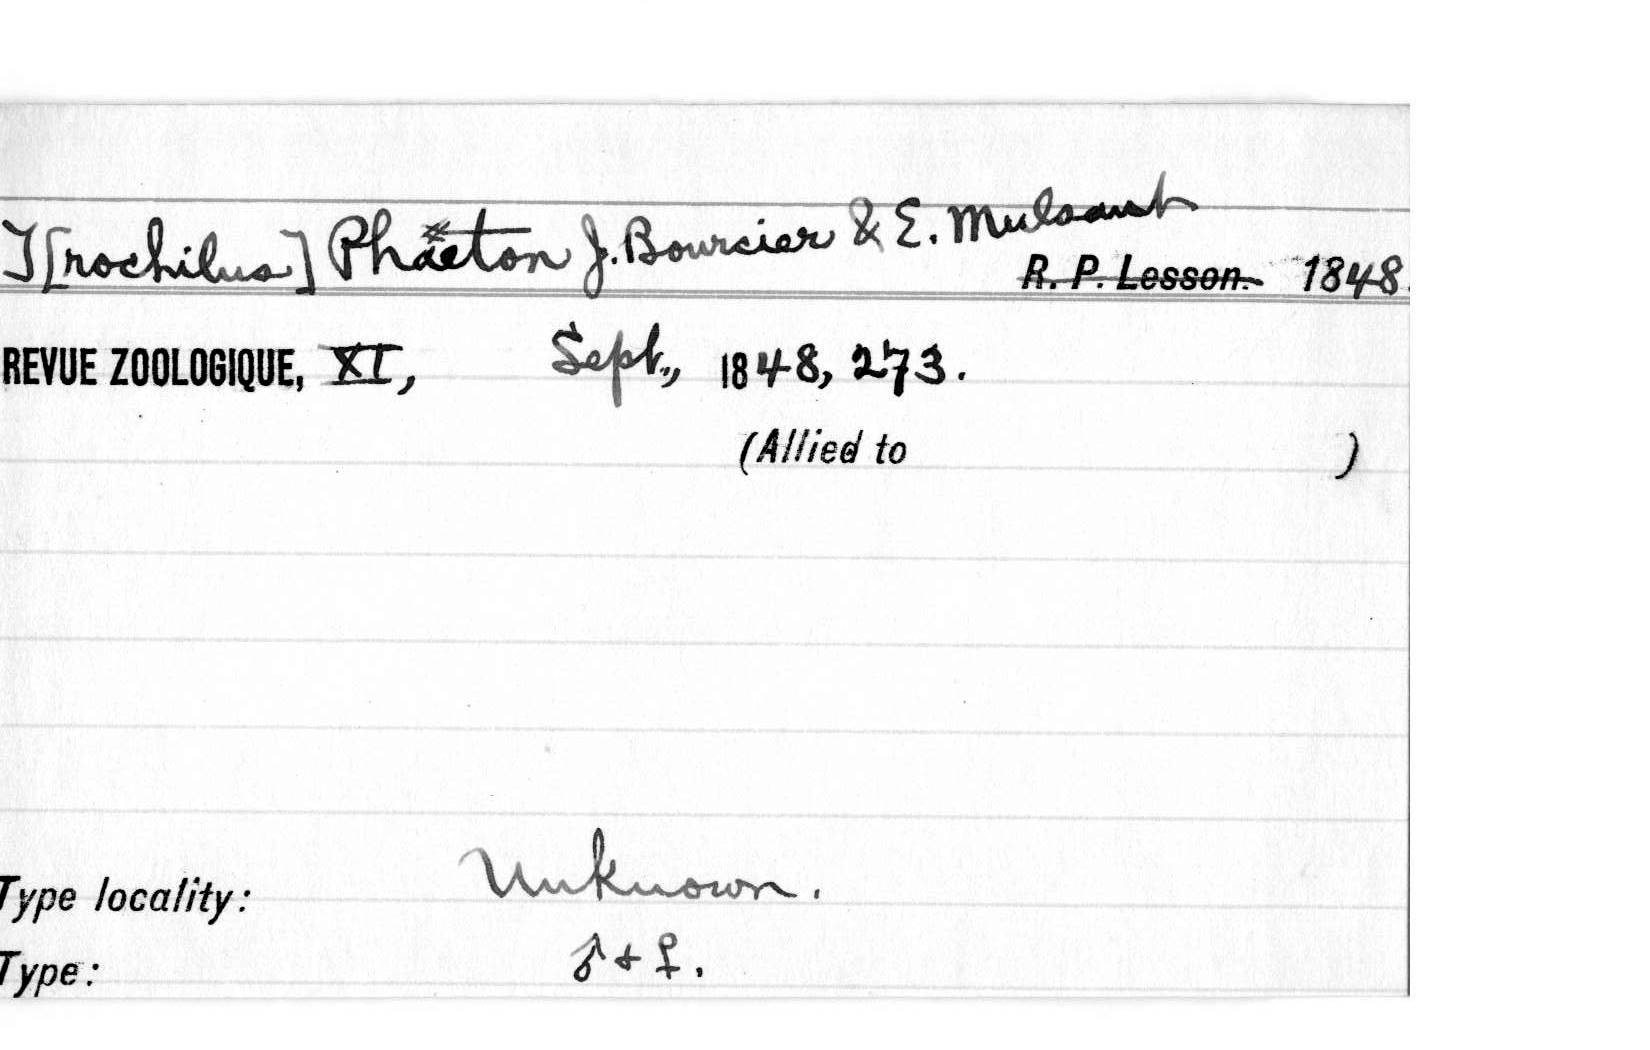 T[rochilus] Phaëton J. Bourcier & E. Mulsant
R. P. Lesson. 1848.
REVUE ZOOLOGIQUE, XI, Sept., 1848, 273.
(Allied to )
Type locality: Unknown.
Type: ♂ + ♀.